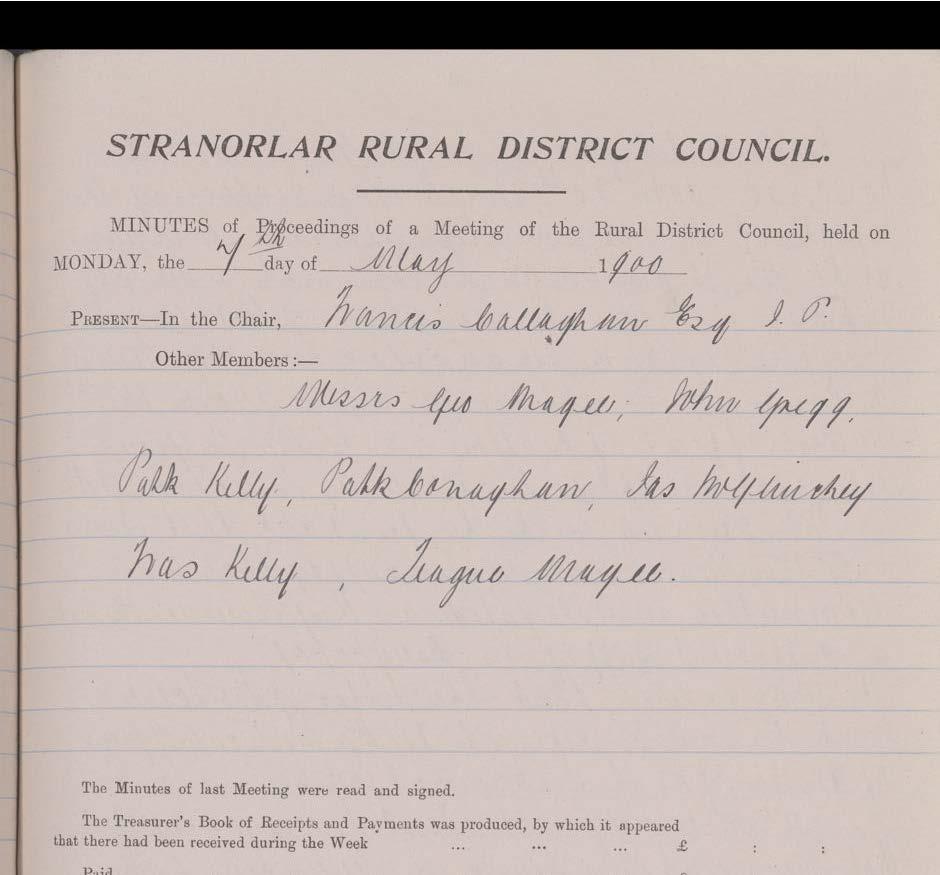 STRANORLAR RURAL DISTRICT COUNCIL.
MINUTES of Proceedings of a Meeting of the Rural District Council, held on
MONDAY, the 7th day of May 1900
PRESENT—In the Chair, Francis Callaghan Esq J. P.
Other Members:—
Messrs Geo Magee, John Gregg,
Patk Kelly, Patk Conaghan, Jas McGlinchey
Fras Kelly, Teague Magee.
The Minutes of last Meeting were read and signed.
The Treasurer's Book of Receipts and Payments was produced, by which it appeared
that there had been received during the Week ... ... ... £ : :
Paid